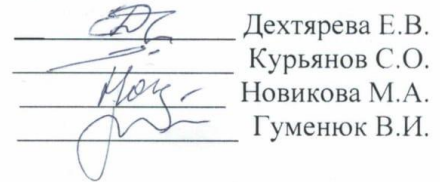 Дехтярева Е.В.
Курьянов С.О.
Новикова М.А.
Гуменюк В.И.